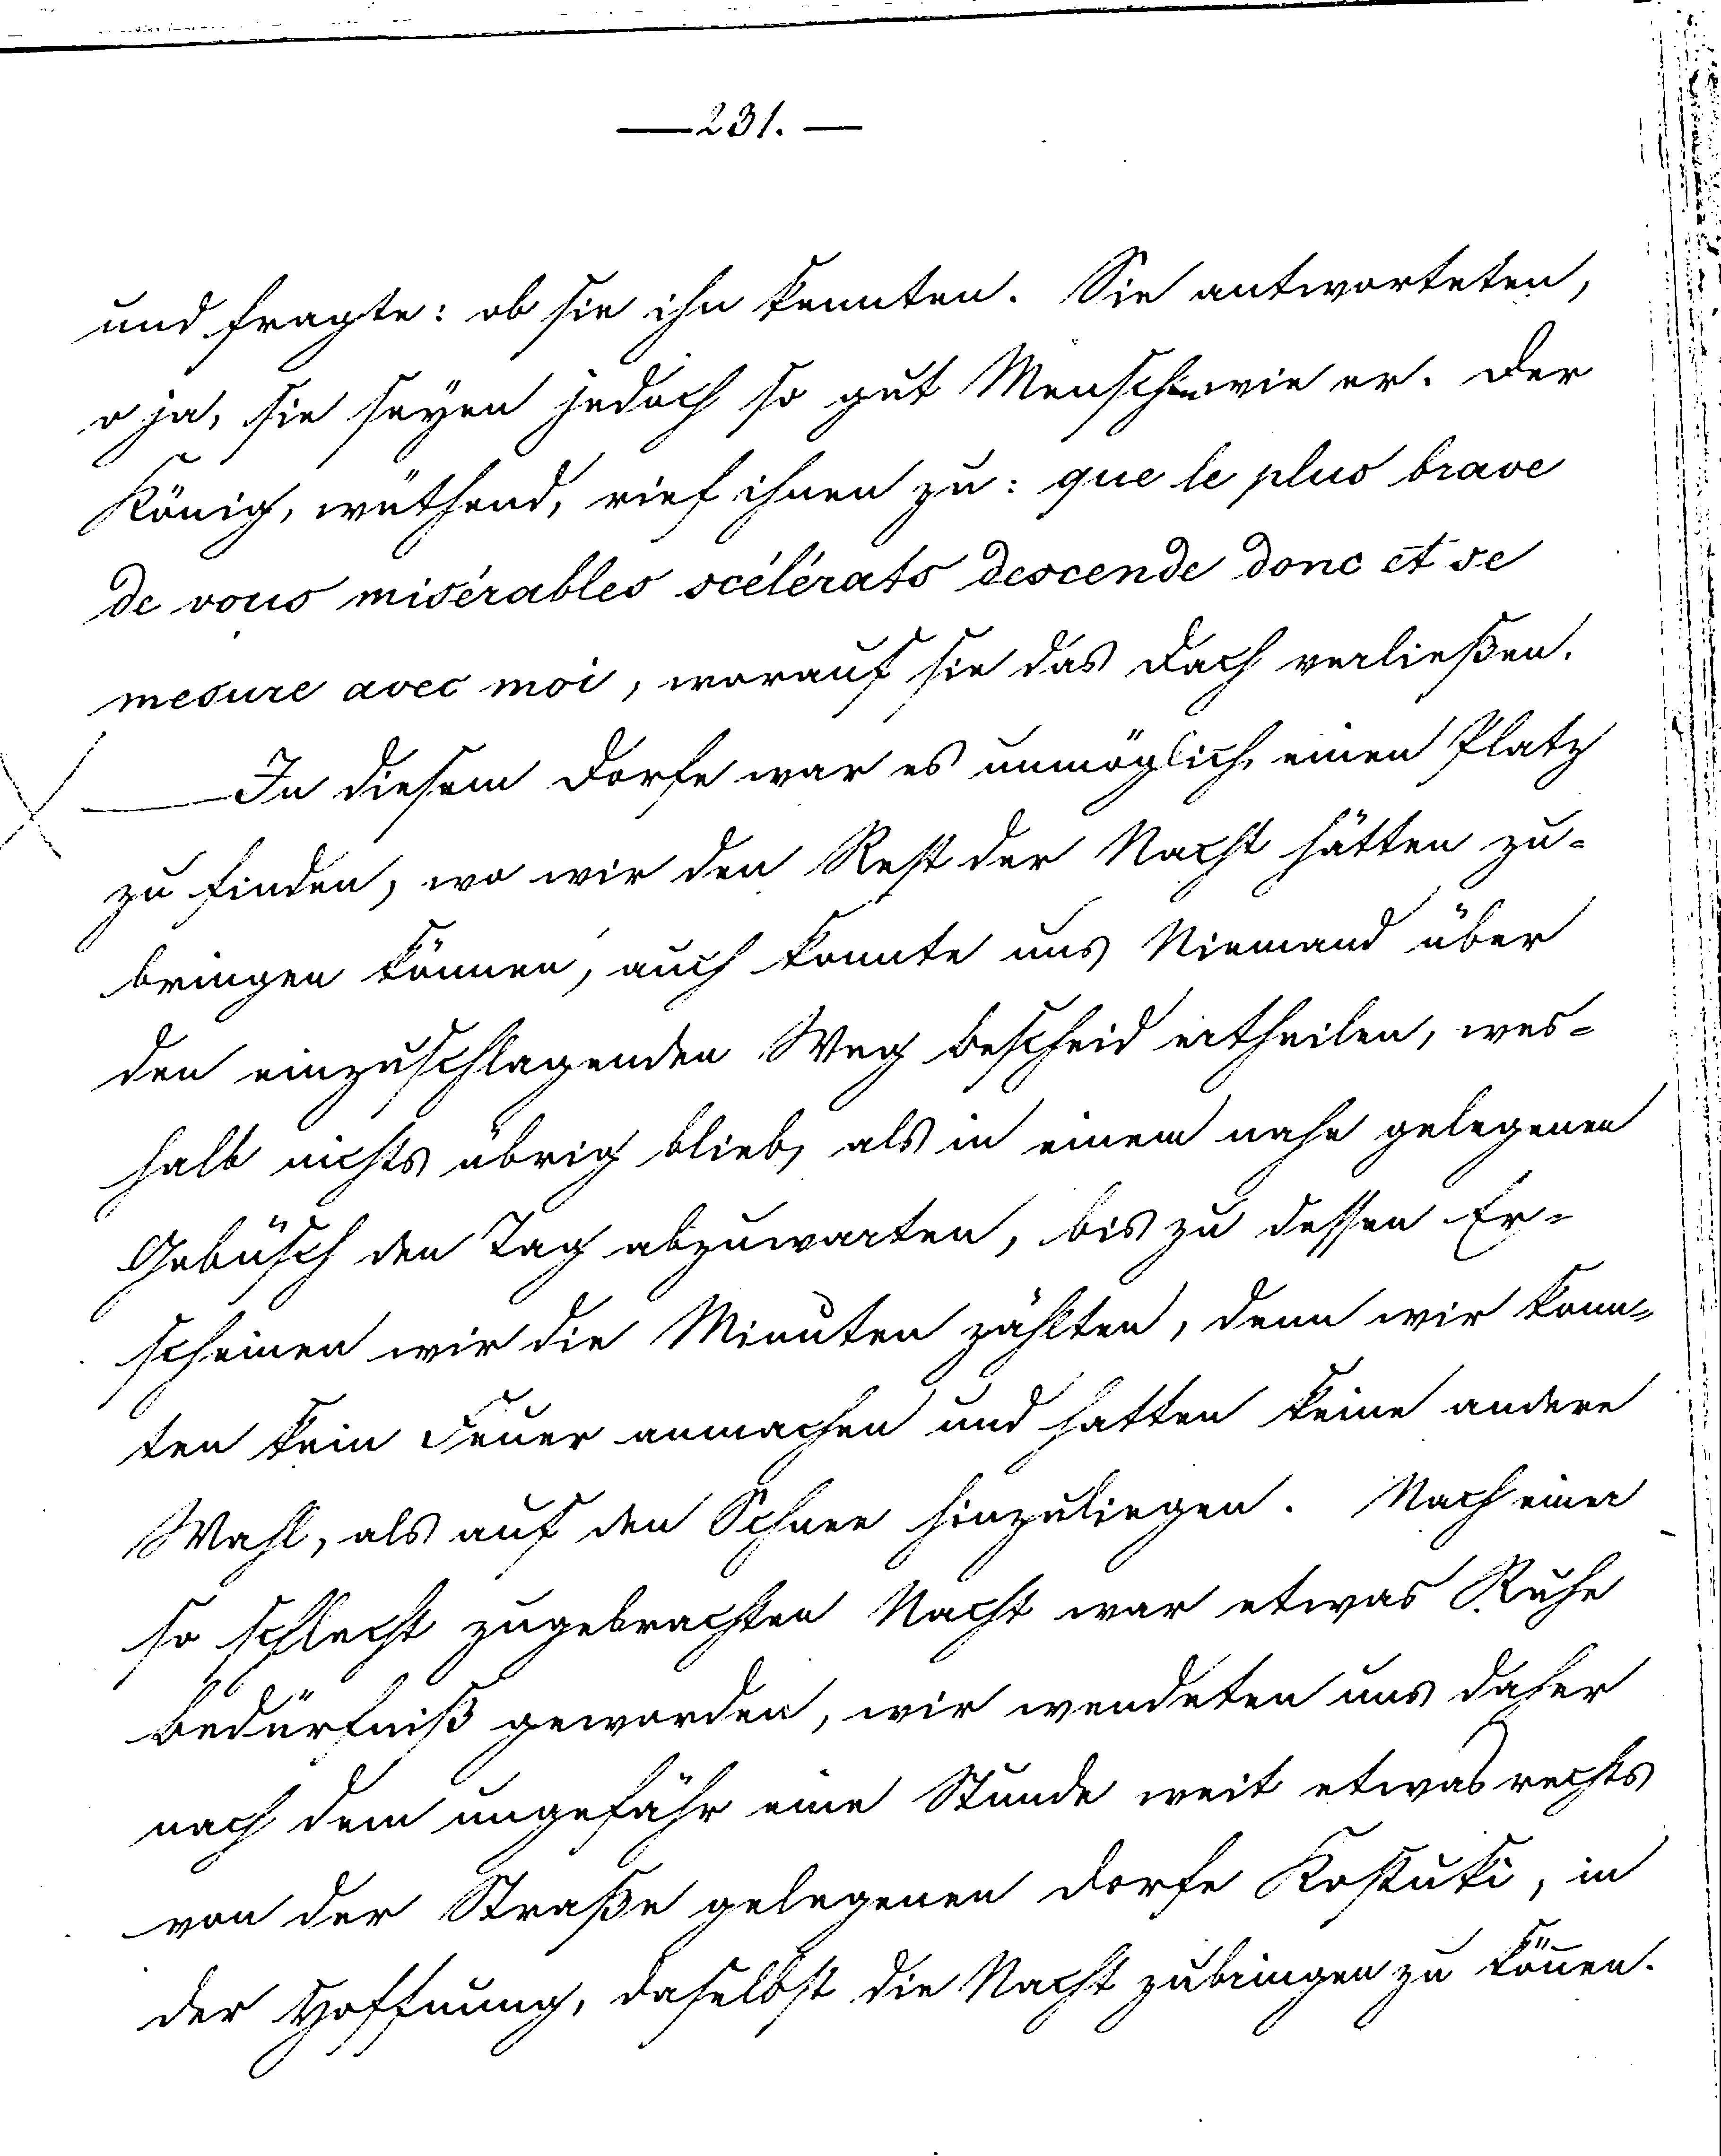 — 231. —
und fragte: ob sie ihn kennten. Sie antworteten,
o ja, sie seyen jedoch so gut Menschen wie er. Der
König, wüthend, rief ihnen zu: que le plus brave
de vous misérables scélérats descende donc et se
mesure avec moi, worauf sie das Dach verließen.
In diesem Dorfe war es unmöglich, einen Platz
zu finden, wo wir den Rest der Nacht hätten zu-
bringen können, auch konnte uns Niemand über
den einzuschlagenden Weg Bescheid ertheilen, wes-
halb nichts übrig blieb, als in einem nahe gelegenen
Gebüsch den Tag abzuwarten, bis zu dessen Er-
scheinen wir die Minuten zählten, denn wir konn-
ten kein Feuer anmachen und hatten keine andere
Wahl, als auf den Schnee hinzuliegen. Nach einer
so schlecht zugebrachten Nacht war etwas Ruhe
Bedürfniß geworden, wir wendeten uns daher
nach dem ungefähr eine Stunde weit etwas rechts
von der Straße gelegenen Dorfe Kostuki, in
der Hoffnung, daselbst die Nacht zubringen zu köñen.